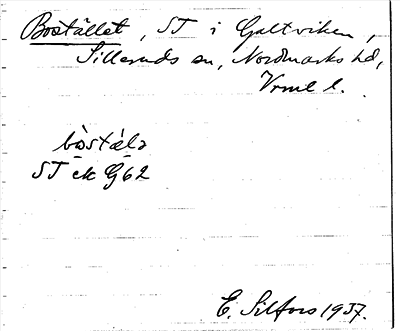 Bostället, ST i Galtviken,
Silleruds sn, Nordmarks hd,
Vrml l.
bòstæ̀lə
ST ek G62
E. Silfors 1937.